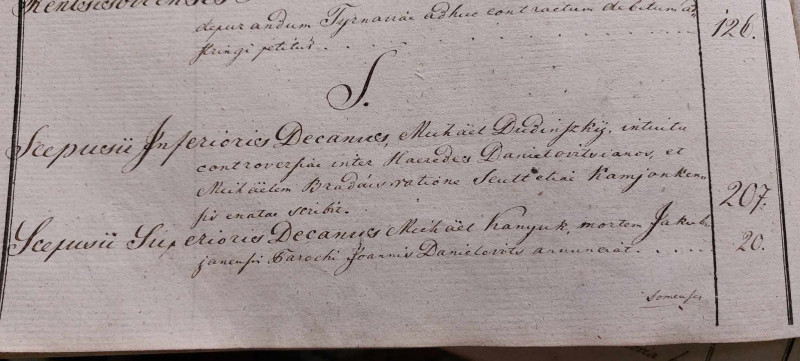 depurandum Tyrnaviae adhuc contractum debitum ad
stringi petitur. 126.
S.
Scepusii Inferioris Decanus, Michaël Dudinszkÿ, intuitu
controversiae inter Haeredes Danielovitsianos, et
Michaëlem Bradáts ratione Scultetiae Kamjonken
sis enatae scribit. 207.
Scepusii Superioris Decanus Michaël Kanyuk, mortem Jakub
janensis Parochi Joannis Danielovits annunciat. 20.